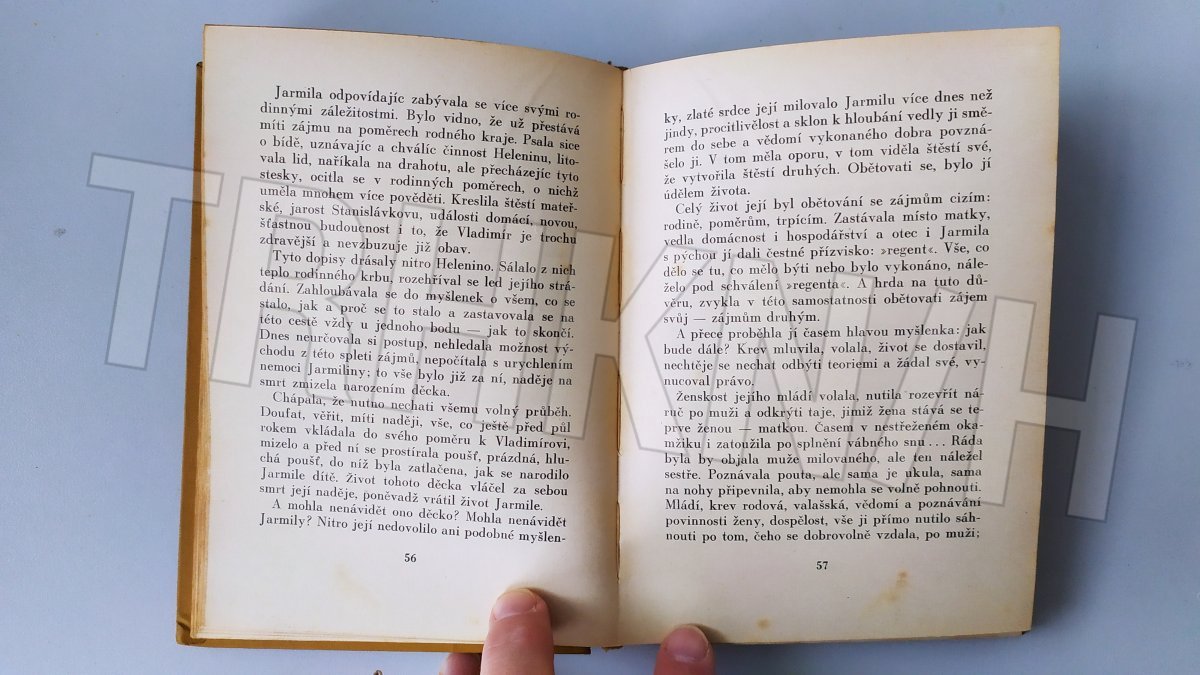 Jarmila odpovídajíc zabývala se více svými ro-
dinnými záležitostmi. Bylo vidno, že už přestává
míti zájmu na poměrech rodného kraje. Psala sice
o bídě, uznávajíc a chválíc činnost Heleninu, lito-
vala lid, naříkala na drahotu, ale přecházejíc tyto
stesky, ocitla se v rodinných poměrech, o nichž
uměla mnohem více pověděti. Kreslila štěstí mateř-
ské, jarost Stanislávkovu, události domácí, novou,
šťastnou budoucnost i to, že Vladimír je trochu
zdravější a nevzbuzuje již obav.
Tyto dopisy drásaly nitro Helenino. Sálalo z nich
teplo rodinného krbu, rozehříval se led jejího strá-
dání. Zahloubávala se do myšlenek o všem, co se
stalo, jak a proč se to stalo a zastavovala se na
této cestě vždy u jednoho bodu — jak to skončí.
Dnes neurčovala si postup, nehledala možnost vý-
chodu z této spleti zájmů, nepočítala s urychlením
nemoci Jarmiliny; to vše bylo již za ní, naděje na
smrt zmizela narozením děcka.
Chápala, že nutno nechati všemu volný průběh.
Doufat, věřit, míti naději, vše, co ještě před půl
rokem vkládala do svého poměru k Vladimírovi,
mizelo a před ní se prostírala poušť, prázdná, hlu-
chá poušť, do níž byla zatlačena, jak se narodilo
Jarmile dítě. Život tohoto děcka vláčel za sebou
smrt její naděje, poněvadž vrátil život Jarmile.
A mohla nenávidět ono děcko? Mohla nenávidět
Jarmily? Nitro její nedovolilo ani podobné myšlen-
56
ky, zlaté srdce její milovalo Jarmilu více dnes než
jindy, procitlivělost a sklon k hloubání vedly ji smě-
rem do sebe a vědomí vykonaného dobra povzná-
šelo ji. V tom měla oporu, v tom viděla štěstí své,
že vytvořila štěstí druhých. Obětovati se, bylo jí
údělem života.
Celý život její byl obětování se zájmům cizím:
rodině, poměrům, trpícím. Zastávala místo matky,
vedla domácnost i hospodářství a otec i Jarmila
s pýchou jí dali čestné přízvisko: »regent«. Vše, co
dělo se tu, co mělo býti nebo bylo vykonáno, nále-
želo pod schválení »regenta«. A hrda na tuto dů-
věru, zvykla v této samostatnosti obětovati zájem
svůj — zájmům druhým.
A přece proběhla jí časem hlavou myšlenka: jak
bude dále? Krev mluvila, volala, život se dostavil,
nechtěje se nechat odbýti teoriemi a žádal své, vy-
nucoval právo.
Ženskost jejího mládí volala, nutila rozevřít ná-
ruč po muži a odkrýti taje, jimiž žena stává se te-
prve ženou — matkou. Časem v nestřeženém oka-
mžiku i zatoužila po splnění vábného snu... Ráda
byla by objala muže milovaného, ale ten náležel
sestře. Poznávala pouta, ale sama je ukula, sama
na nohy připevnila, aby nemohla se volně pohnouti.
Mládí, krev rodová, valašská, vědomí a poznávání
povinnosti ženy, dospělost, vše ji přímo nutilo sáh-
nouti po tom, čeho se dobrovolně vzdala, po muži;
57
TRHKNIH